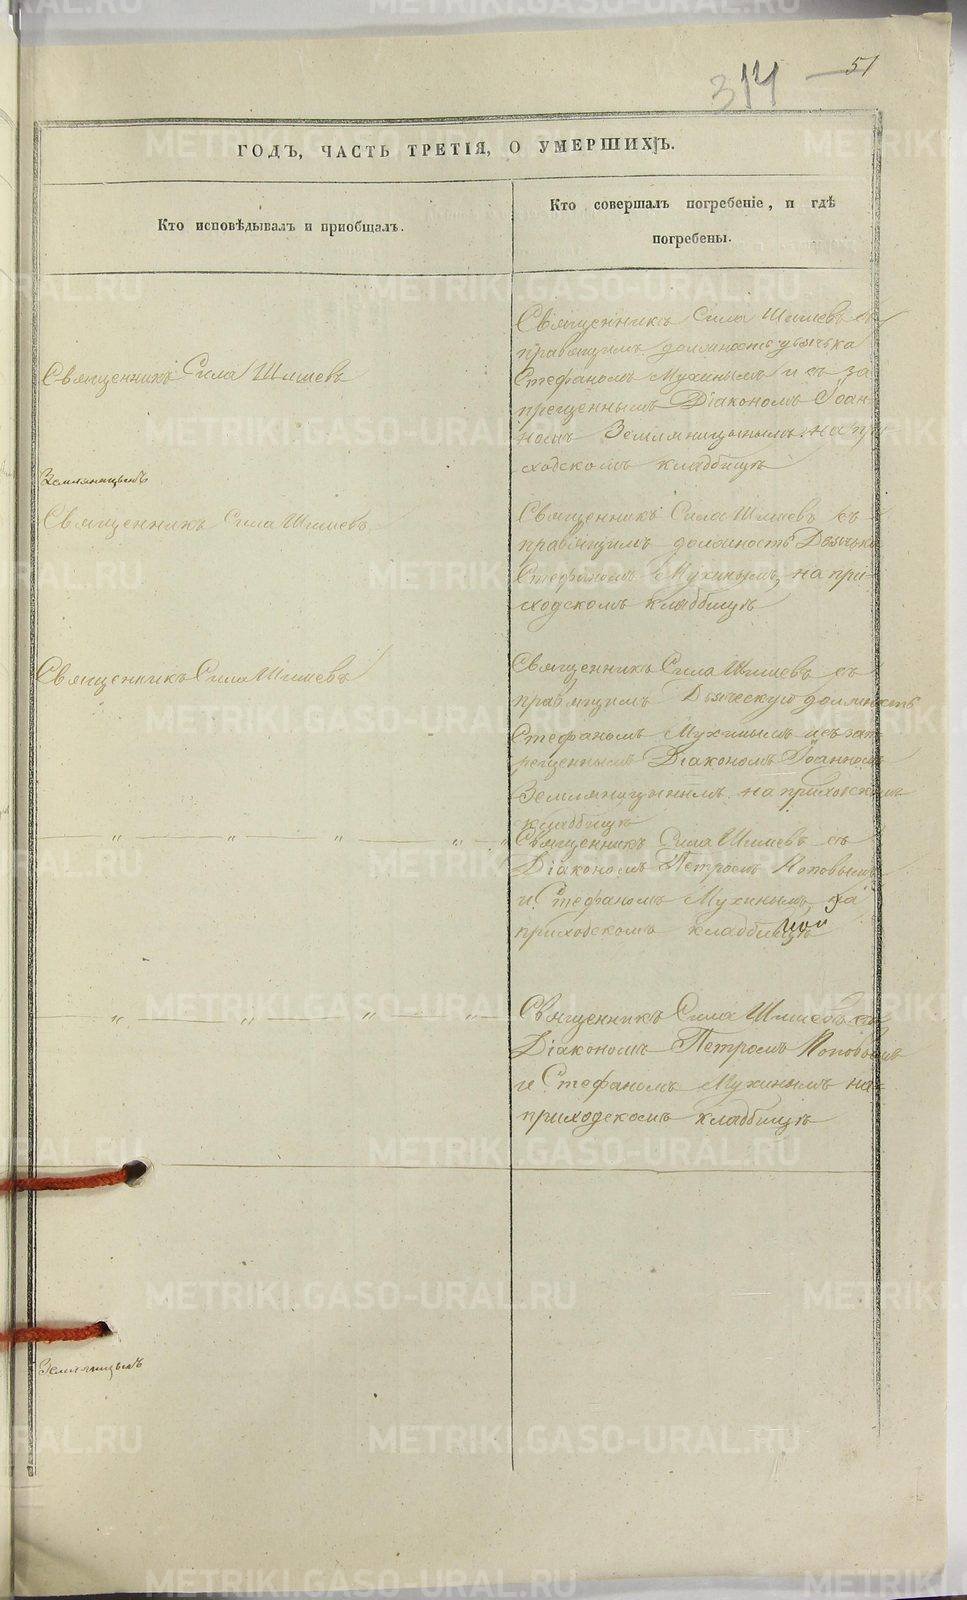 314 51
ГОДЪ, ЧАСТЬ ТРЕТІЯ, О УМЕРШИХЪ.
Кто исповѣдывалъ и приобщалъ.
Кто совершалъ погребеніе, и гдѣ
погребены.
Священникъ Сила
Священникъ Сила съ
правящимъ должность дьячька
Стефаномъ Мухинымъ и съ за
прещеннымъ Діакономъ Іоан-
номъ Земляницынымъ на при
ходскомъ кладбищѣ
Земляницынъ
Священникъ Сила
Священникъ Сила съ
правящимъ должность Дьячька
Стефаномъ Мухинымъ, на при-
ходскомъ кладбищѣ
Священникъ Сила
Священникъ Сила съ
правящимъ Дьяческую должность
Стефаномъ Мухинымъ и съ зап
рещеннымъ Діакономъ Іоанномъ
Земляницынымъ на приходскомъ
кладбищѣ
Священникъ Сила съ
Діакономъ Петромъ Поповымъ
и Стефаномъ Мухинымъ, на
приходскомъ кладбищѣ
Священникъ Сила съ
Діакономъ Петромъ Поповымъ
и Стефаномъ Мухинымъ на
приходскомъ кладбищѣ
Земляницынъ
METRIKI.GASO-URAL.RU